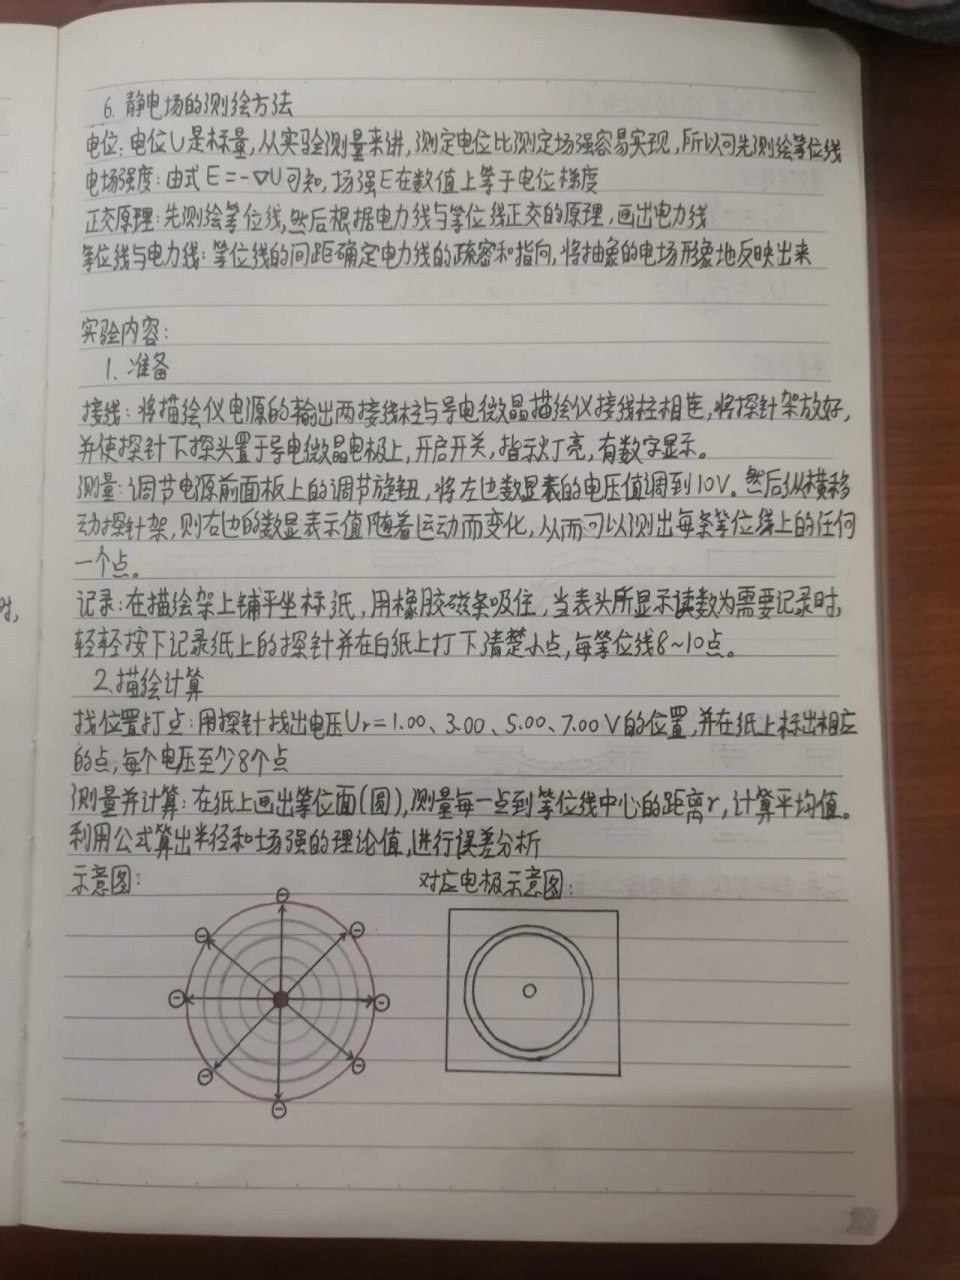 6. 静电场的测绘方法
电位:电位U是标量,从实验测量来讲,测定电位比测定场强容易实现,所以可先测绘等位线
电场强度:由式E=-∇U可知,场强E在数值上等于电位梯度
正交原理:先测绘等位线,然后根据电力线与等位线正交的原理,画出电力线
等位线与电力线:等位线的间距确定电力线的疏密和指向,将抽象的电场形象地反映出来
实验内容:
1. 准备
接线:将描绘仪电源的输出两接线柱与导电微晶描绘仪接线柱相连,将探针架放好,
时,
并使探针下探头置于导电微晶电极上,开启开关,指示灯亮,有数字显示。
测量:调节电源前面板上的调节旋钮,将左边数显表的电压值调到10V。然后纵横移
动探针架,则右边的数显表示值随着运动而变化,从而可以测出每条等位线上的任何
一个点。
记录:在描绘架上铺平坐标纸,用橡胶磁条吸住,当表头所显示读数为需要记录时,
轻轻按下记录纸上的探针并在白纸上打下清楚小点,每等位线8~10点。
2.描绘计算
找位置打点:用探针找出电压Ur=1.00、3.00、5.00、7.00V的位置,并在纸上标出相应
的点,每个电压至少8个点
测量并计算:在纸上画出等位面(圆),测量每一点到等位线中心的距离r,计算平均值。
利用公式算出半径和场强的理论值,进行误差分析
示意图:
对应电极示意图: